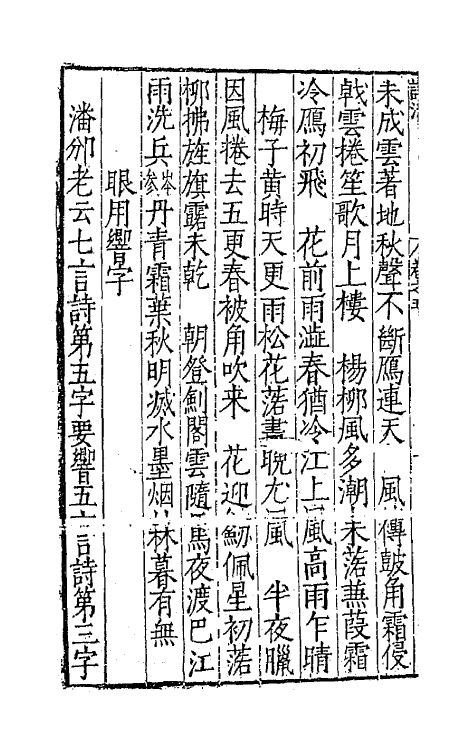 未成雲著地秋聲不斷鴈連天　風傳皷角霜侵
戟雲捲笙歌月上樓　楊柳風多潮未落蒹葭霜
冷鴈初飛　花前雨澁春猶冷江上風高雨乍晴
梅子黄時天更雨松花落晝晩尤風　半夜臘
因風捲去五更春被角吹来　花迎劒佩星初落
柳拂旌旗露未乾　朝登劒閣雲隨馬夜渡巴江
雨洗兵岑參丹青霜葉秋明滅水墨烟林暮有無
眼用響字
潘邠老云七言詩第五字要響五言詩第三字